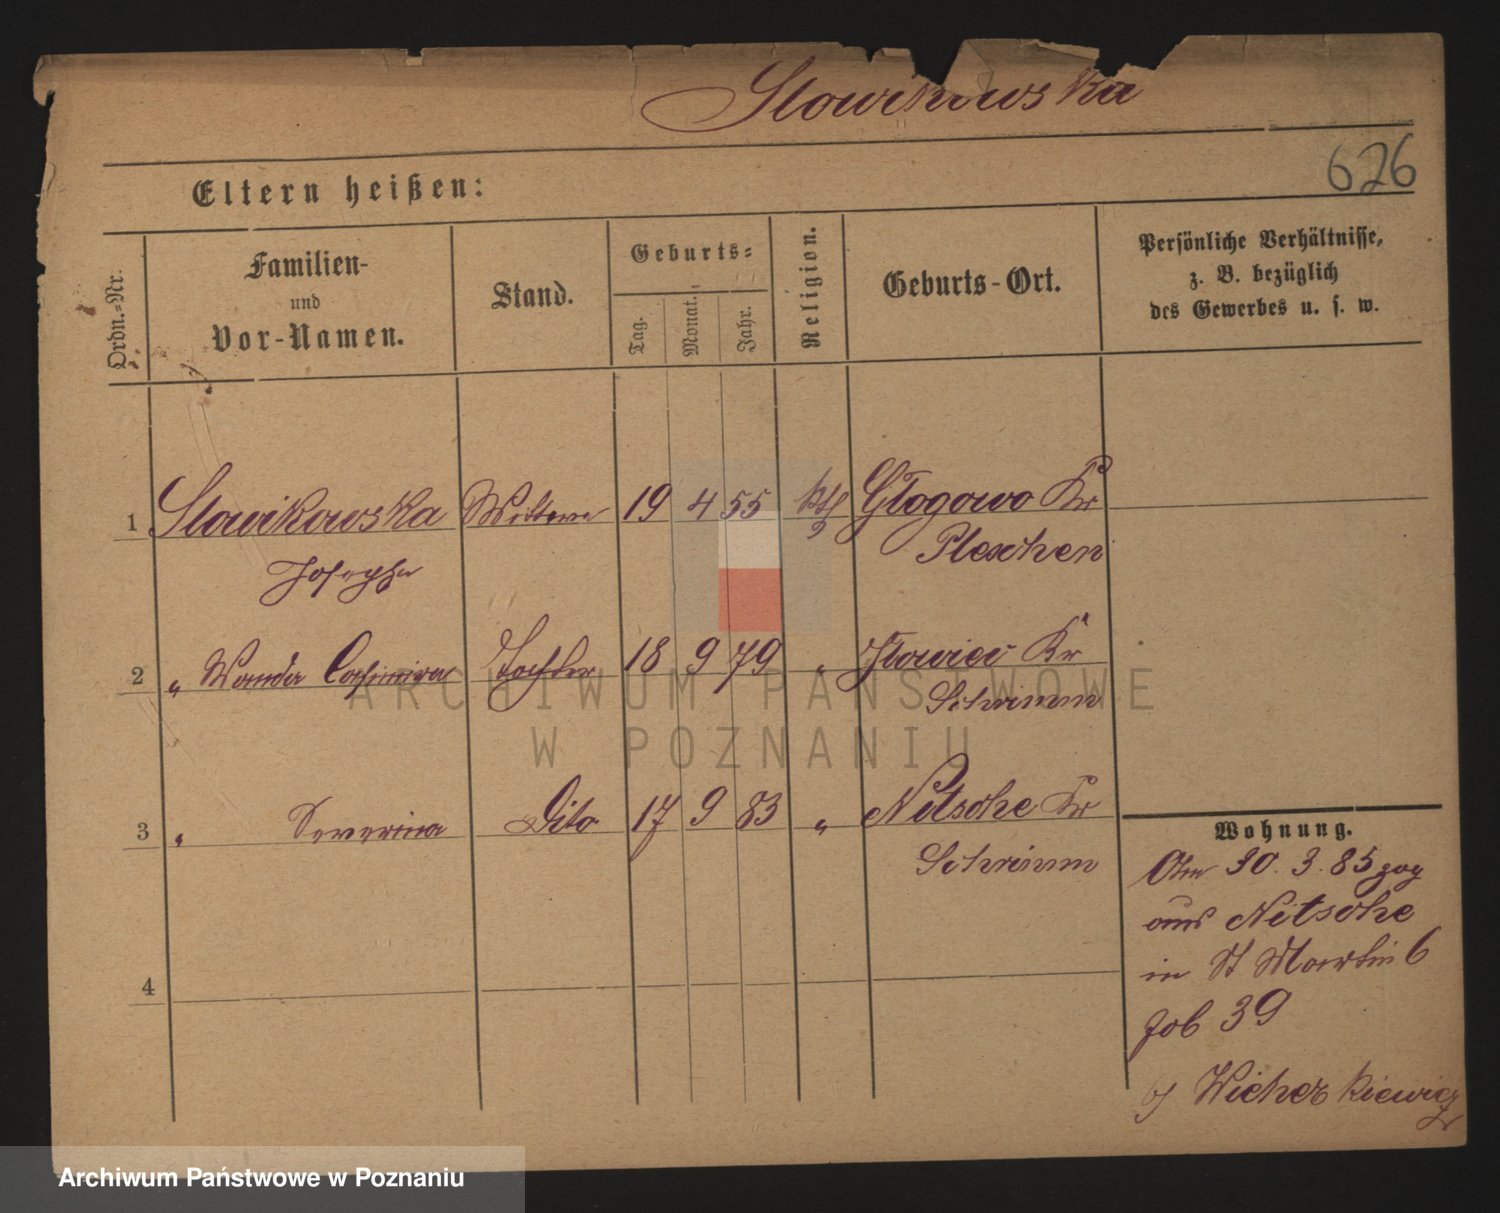 Slowikowska
626
Eltern heißen:
Ordn.-Nr.
Familien-
und
Vor-Namen.
Stand.
Geburts-
Tag.
Monat.
Jahr.
Religion.
Geburts-Ort.
Persönliche Verhältnisse,
z. B. bezüglich
des Gewerbes u. s. w.
1 Slowikowska Wittwe 19 4 55 kth Głogowo Kr
Josepha Pleschen
2 " Wanda Casimira Tochter 18 9 79 " Kr
Schrimm
3 " Severina Dito 17 9 83 " Nitsche Kr
Schrimm
4
Wohnung.
Am 30. 3. 85 zog
aus Nitsche
in St Martin 6
39
Wicherkiewicz
ARCHIWUM PAŃSTWOWE
W POZNANIU
Archiwum Państwowe w Poznaniu